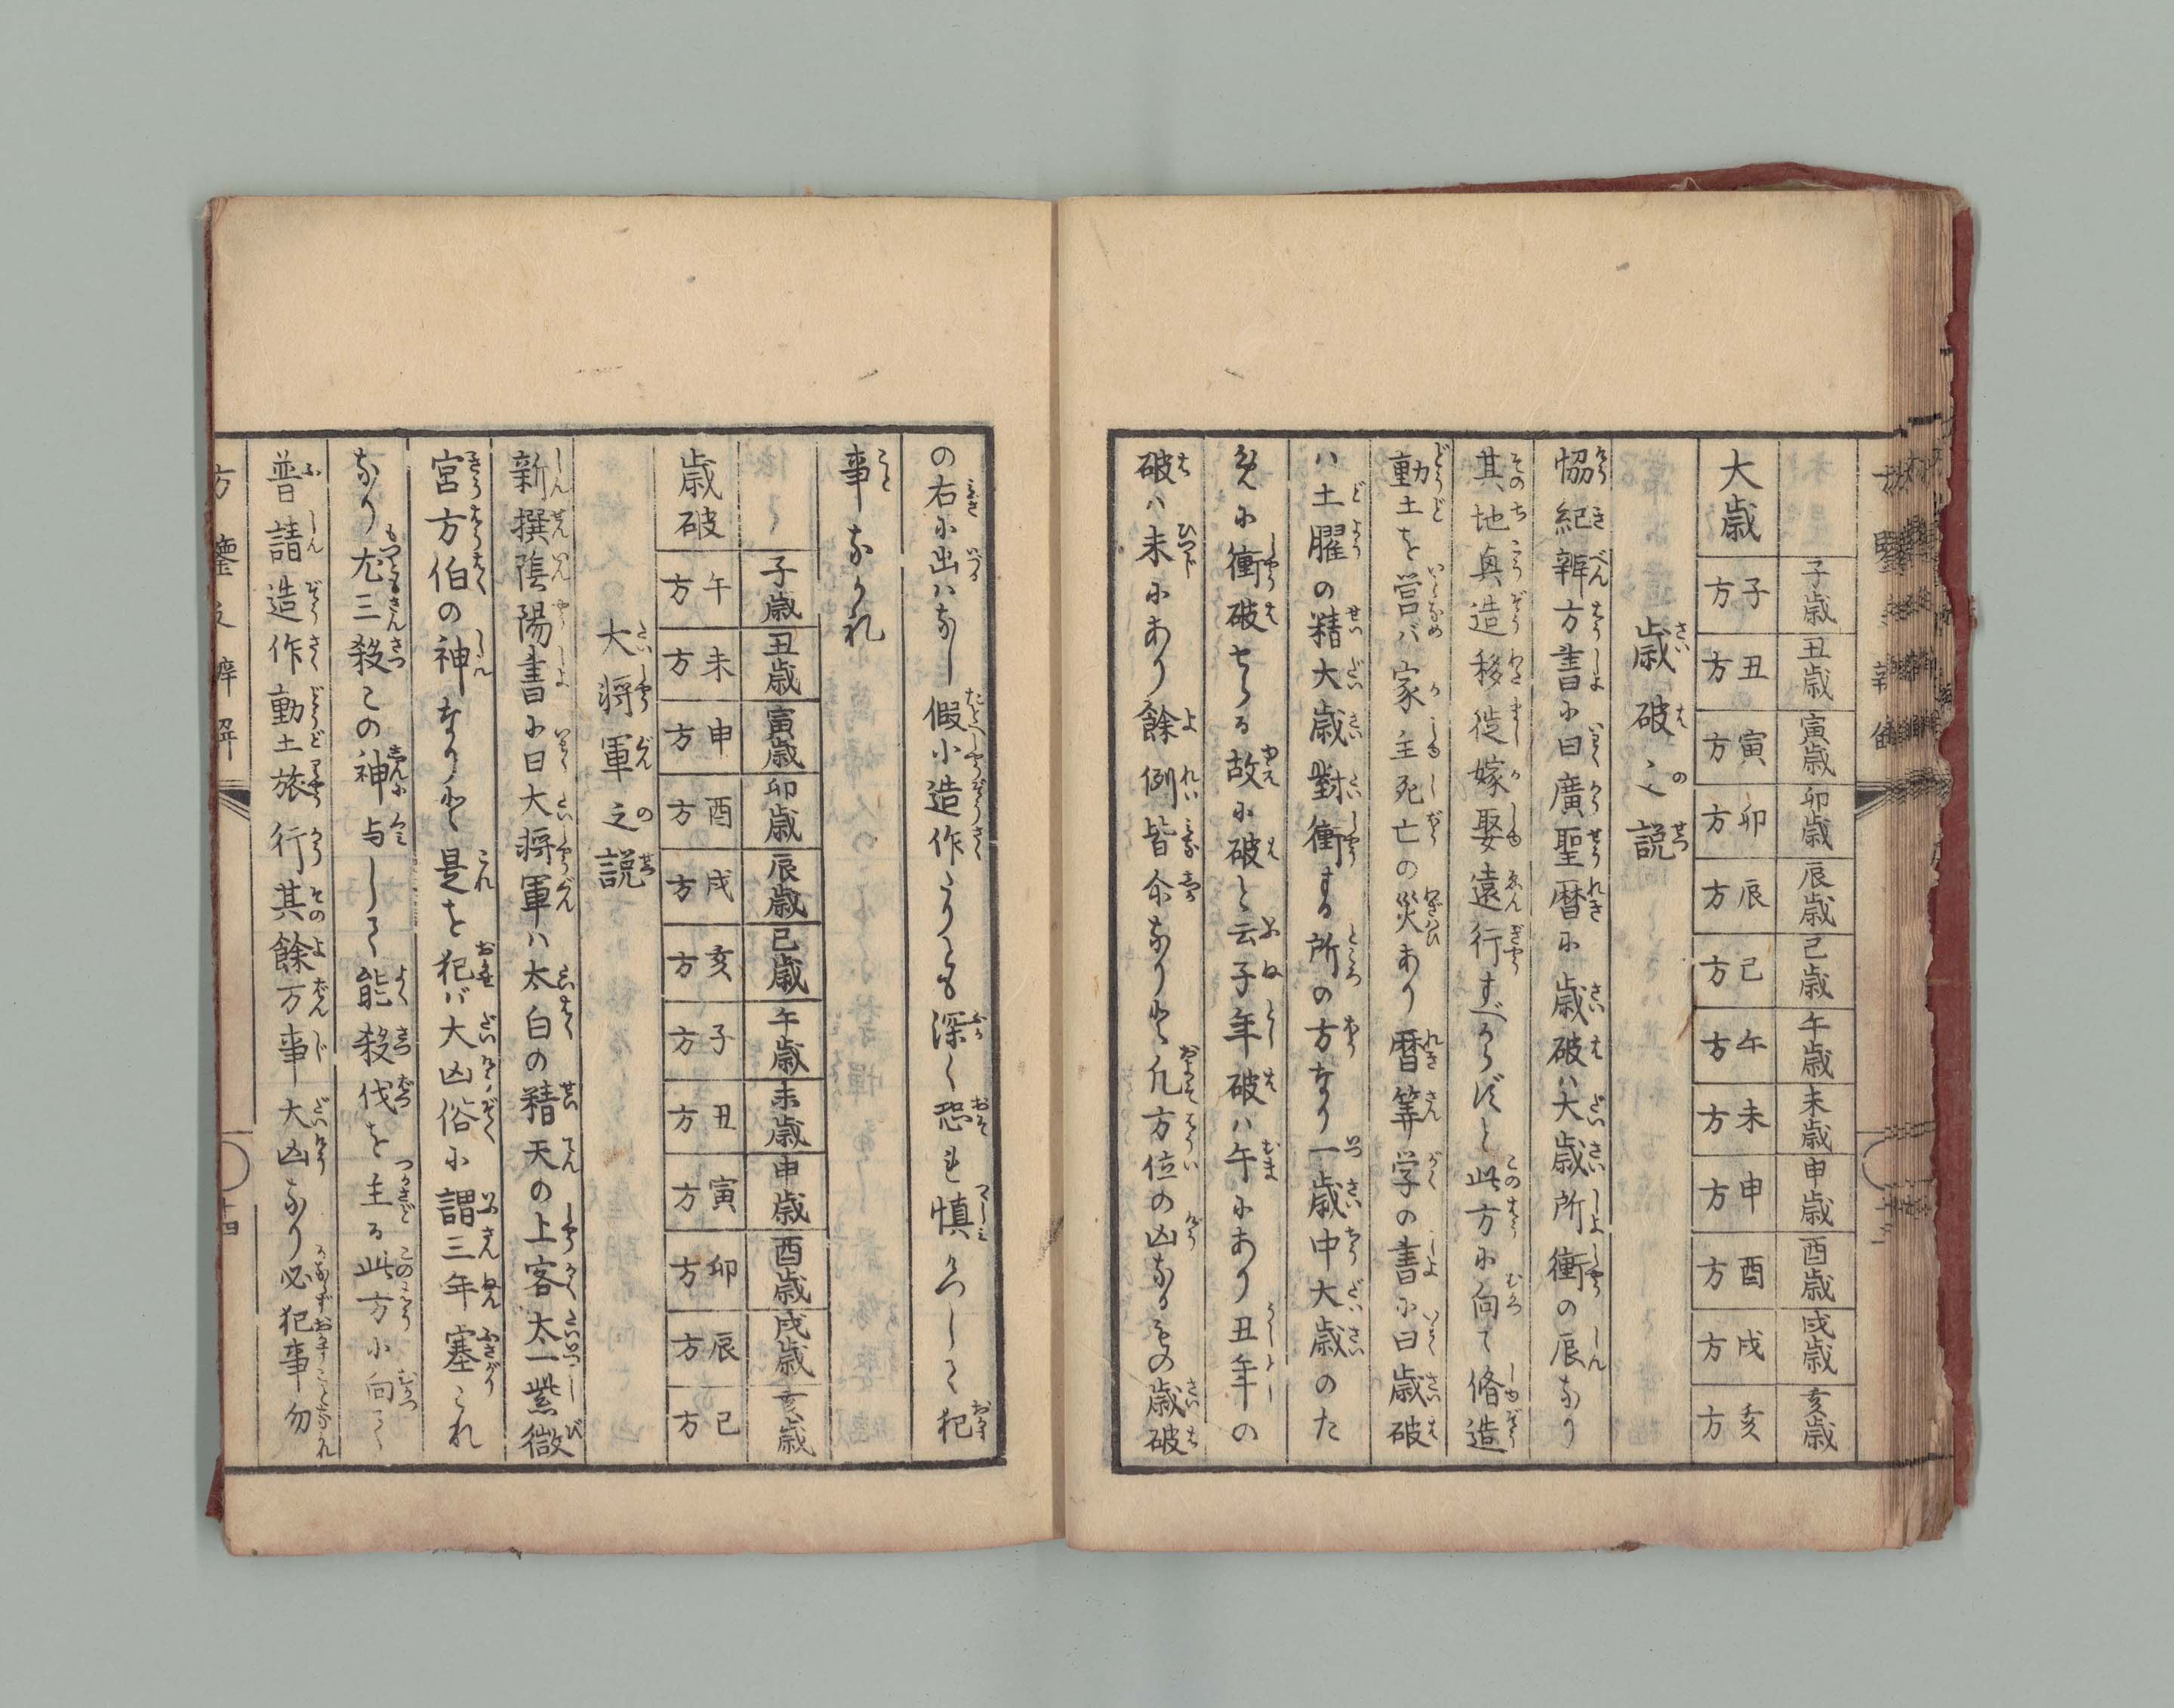 子歳 丑歳 寅歳 卯歳 辰歳 巳歳 午歳 未歳 申歳 酉歳 戌歳 亥歳
大歳 子方 丑方 寅方 卯方 辰方 巳方 午方 未方 申方 酉方 戌方 亥方
歳破之説
恊紀辨方書に曰廣聖暦に歳破ハ大歳所衝の辰なり
其地興造移徙嫁娶遠行すべからずと此方に向て脩造
動土を営バ家主死亡の災あり暦筭学の書に曰歳破
ハ土曜の精大歳對衝する所の方なり一歳中大歳のた
めに衝破せらる故に破と云子年破ハ午にあり丑年の
破ハ未にあり餘例皆尒なりと凡方位の凶なるもの歳破
の右に出ハなし假小造作たりとも深く恐れ慎ミつゝしミて犯
事なかれ
子歳 丑歳 寅歳 卯歳 辰歳 巳歳 午歳 未歳 申歳 酉歳 戌歳 亥歳
歳破 午方 未方 申方 酉方 戌方 亥方 子方 丑方 寅方 卯方 辰方 巳方
大将軍之説
新撰陰陽書に曰大将軍ハ太白の精天の上客太一紫微
宮方伯の神なりと是を犯バ大凶俗に謂三年塞これ
なり尤三殺この神与して能殺伐を主る此方に向て
普請造作動土旅行其餘万事大凶なり必犯事勿
方鑒必辨解 十四